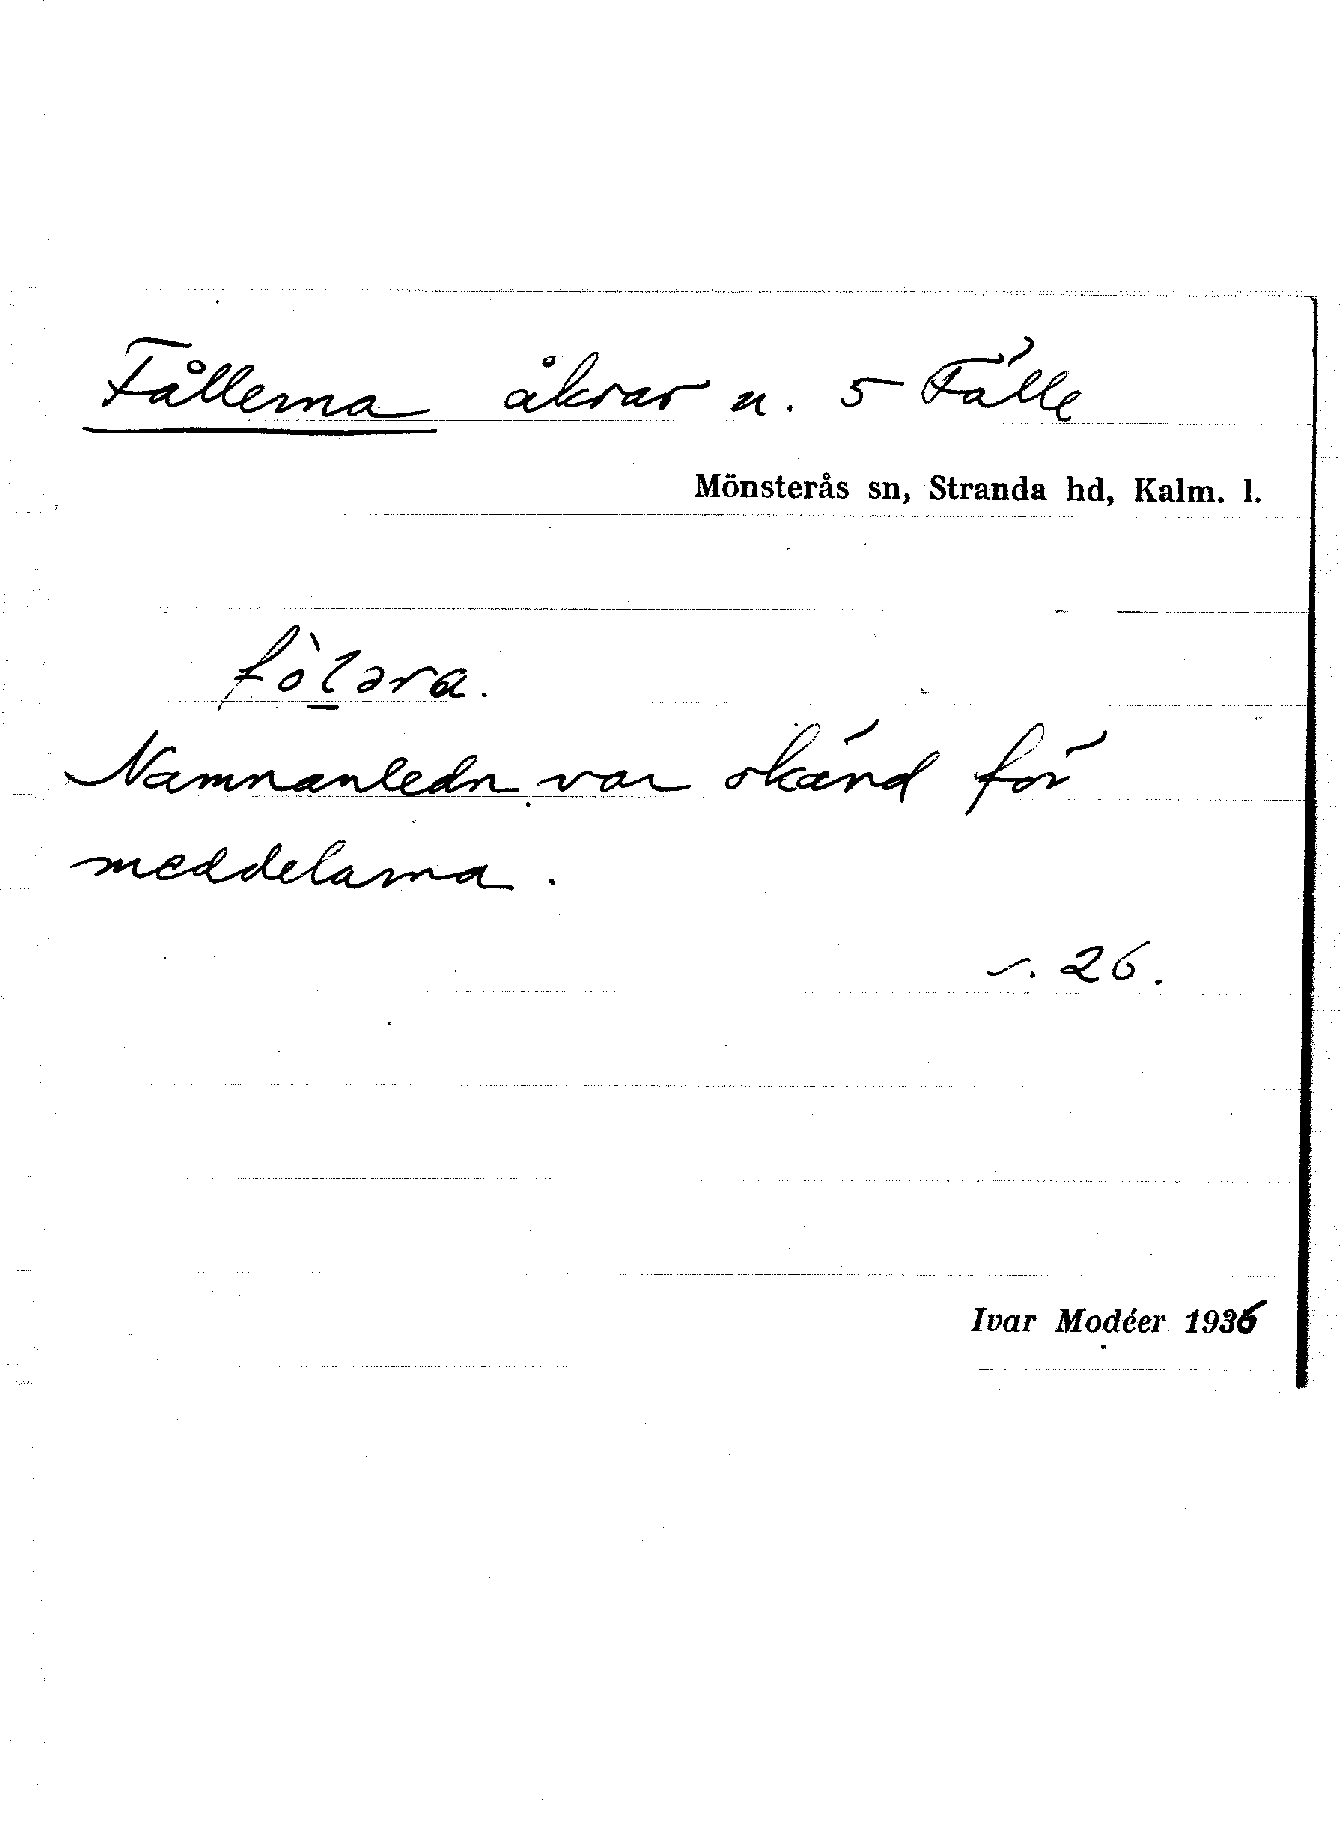 Fållerna åkrar u. 5 Fälle
Mönsterås sn, Stranda hd, Kalm. l.
fò̀lara.
Namnanledn var okänd för
meddelarna.
s. 26.
Ivar Modéer 1936